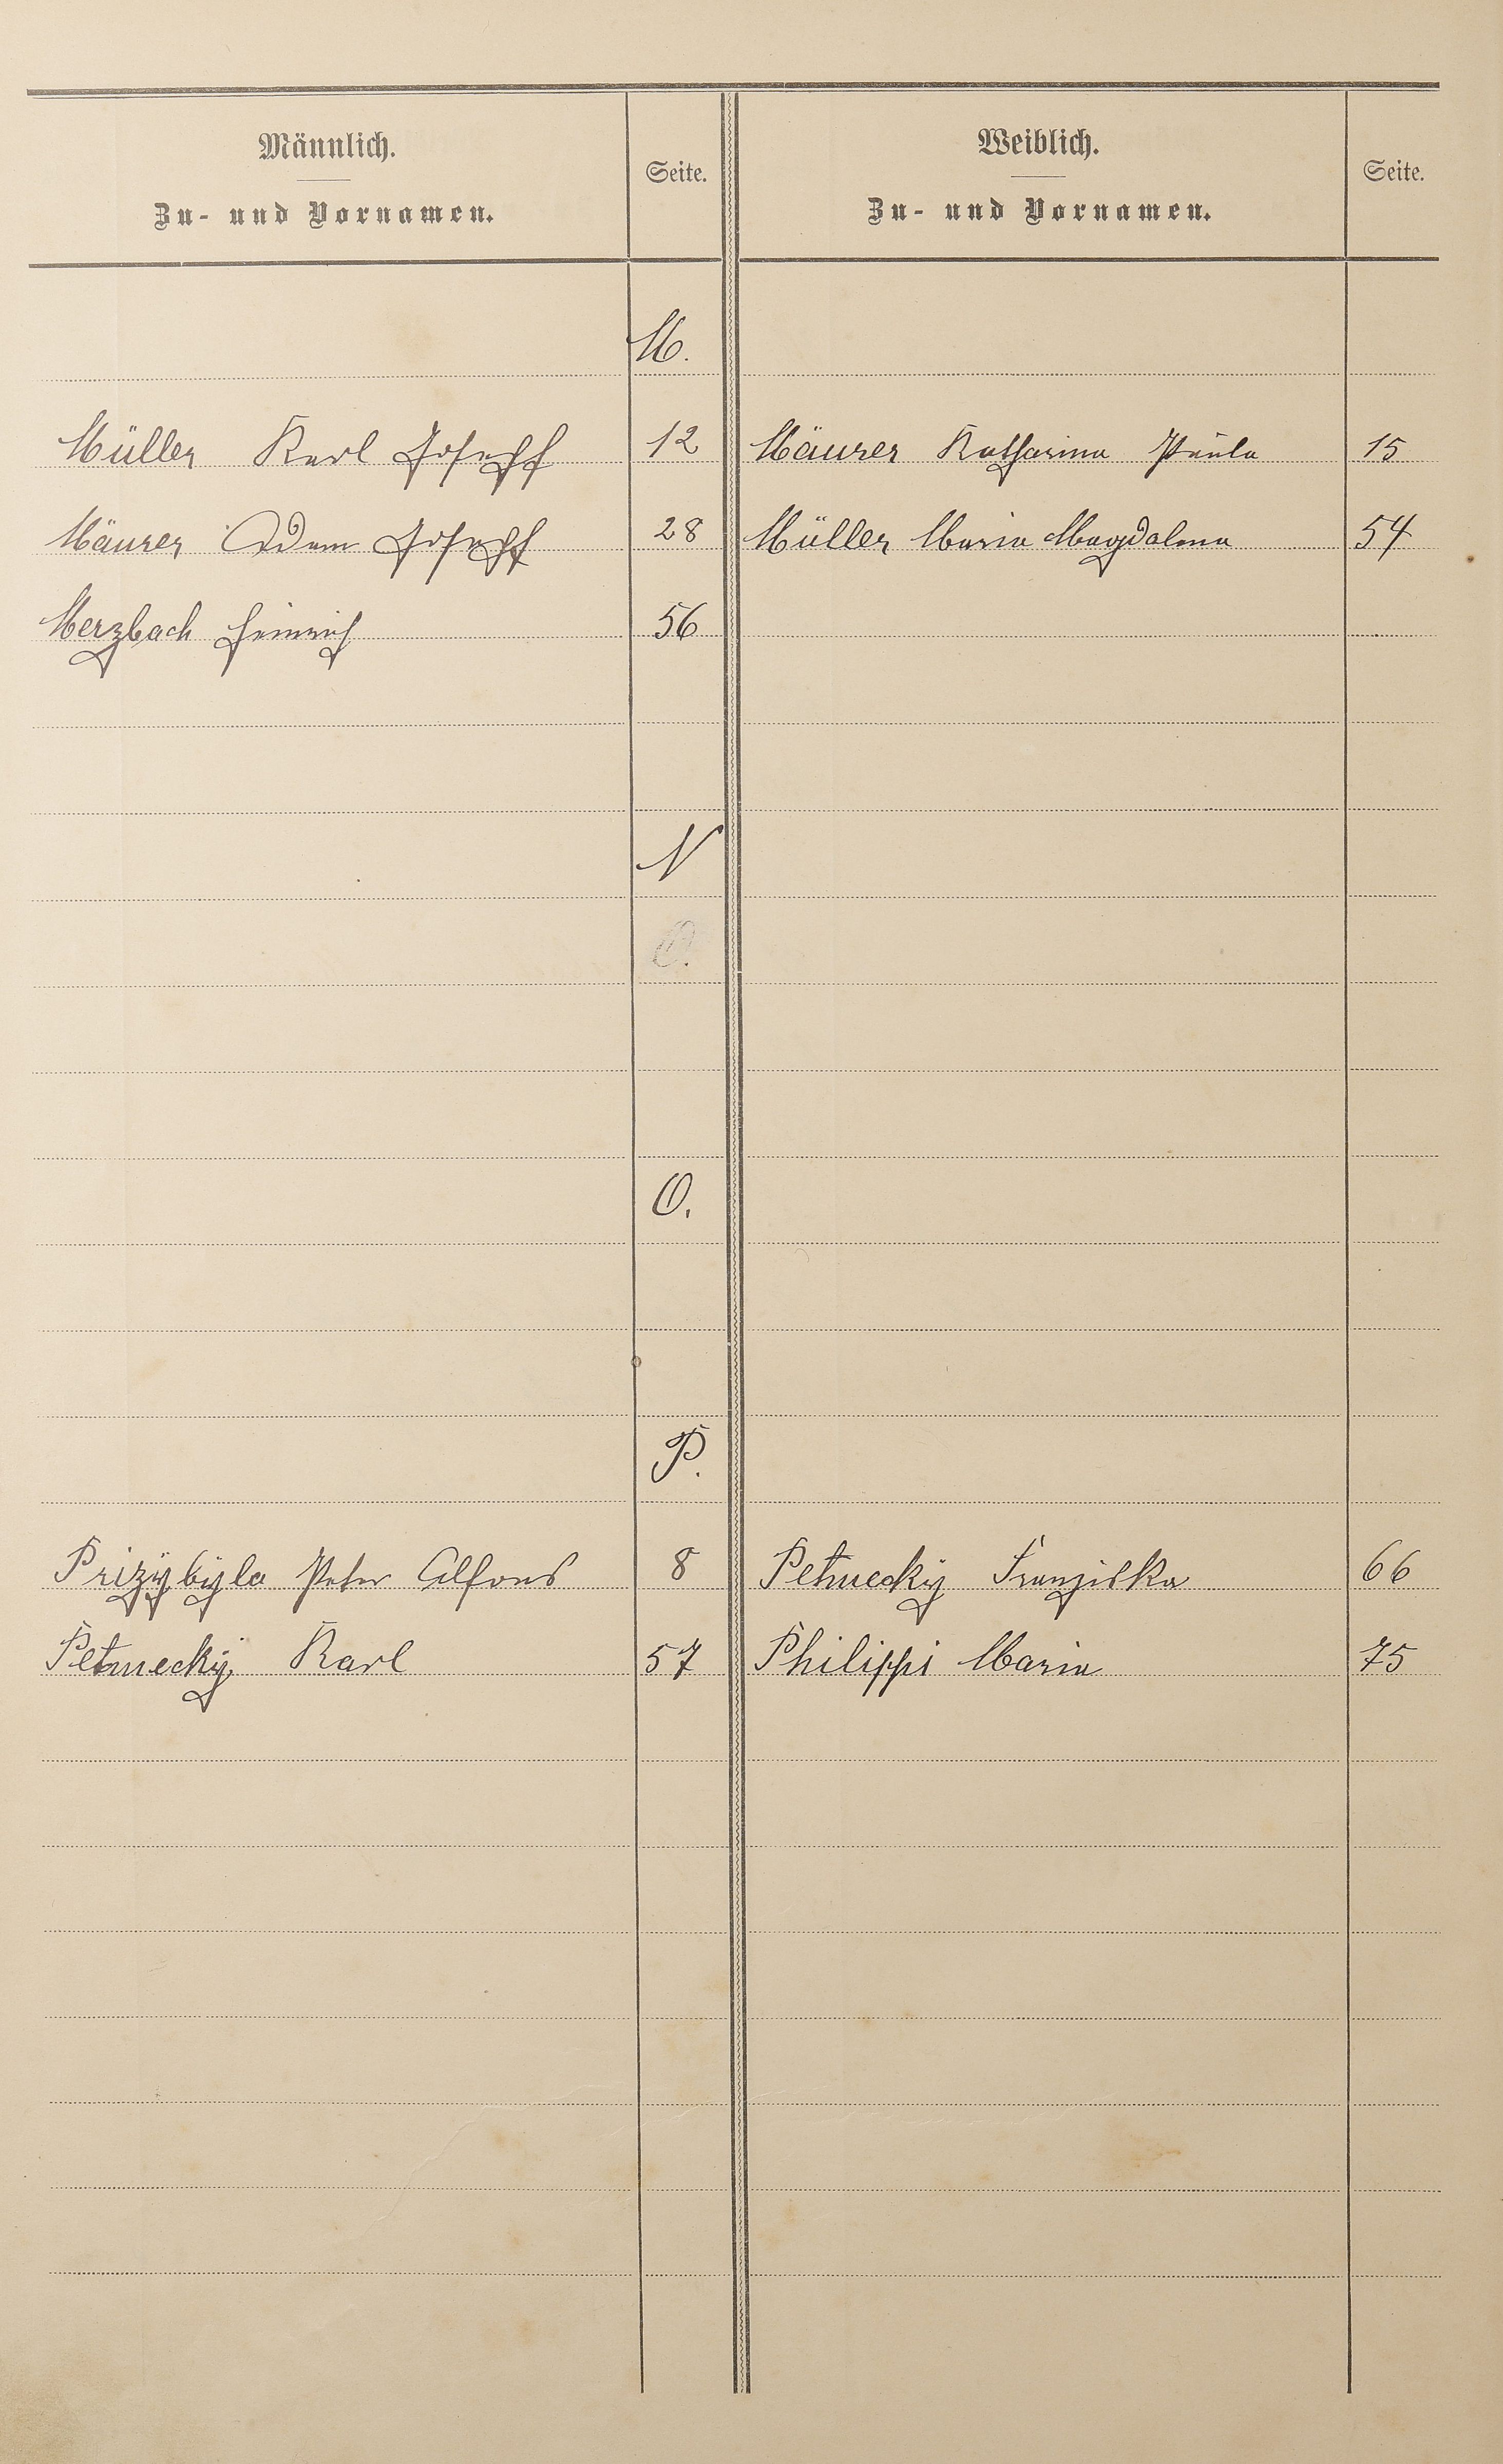 Männlich.
Zu- und Vornamen.
Seite.
Weiblich.
Zu- und Vornamen.
Seite.
M.
Müller Karl Joseph 12 Mäurer Katharina Paula 15
Mäurer Adam Joseph 28 Müller Maria Magdalena 54
Merzbach Heinrich 56
N
O.
O.
P.
Prizÿbÿla Peter Alfons 8 Petneckÿ Franziska 66
Petneckÿ Karl 57 Philippi Maria 75